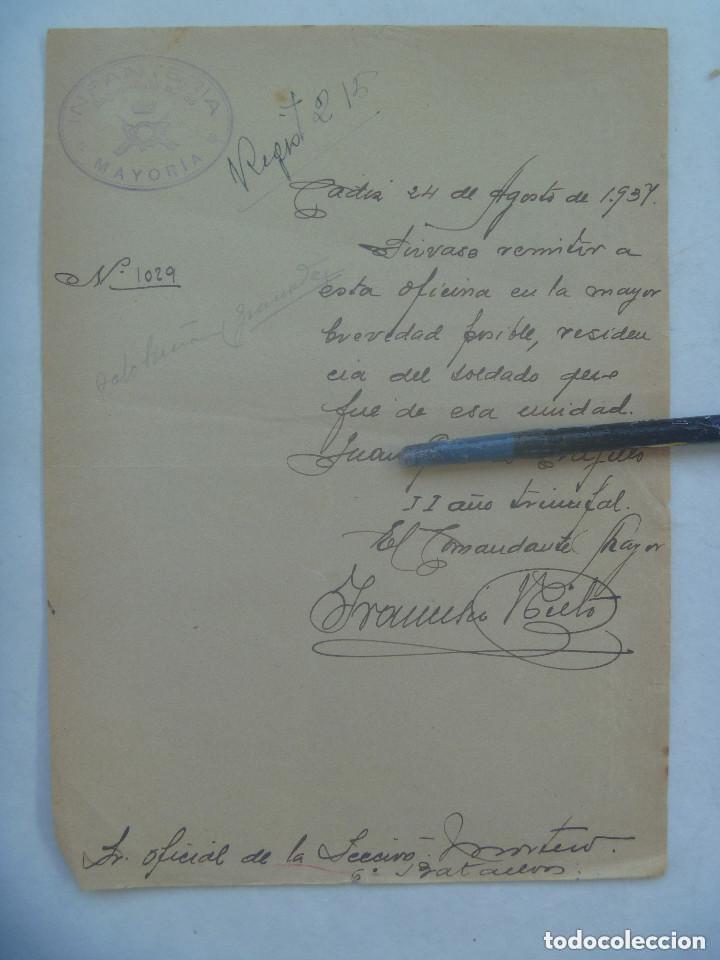 INFANTERIA
MAYORÍA
Regist 215
Cadiz 24 de Agosto de 1.937.
Sirvase remitir a
Nº 1029
esta oficina en la mayor
brevedad posible, residen
cia del soldado que
fue de esa unidad.
Juan
II año triunfal.
El Comandante Mayor
Francisco Nieto
Sr. Oficial de la Sección Mortero.
6º Batallon
todocoleccion.net